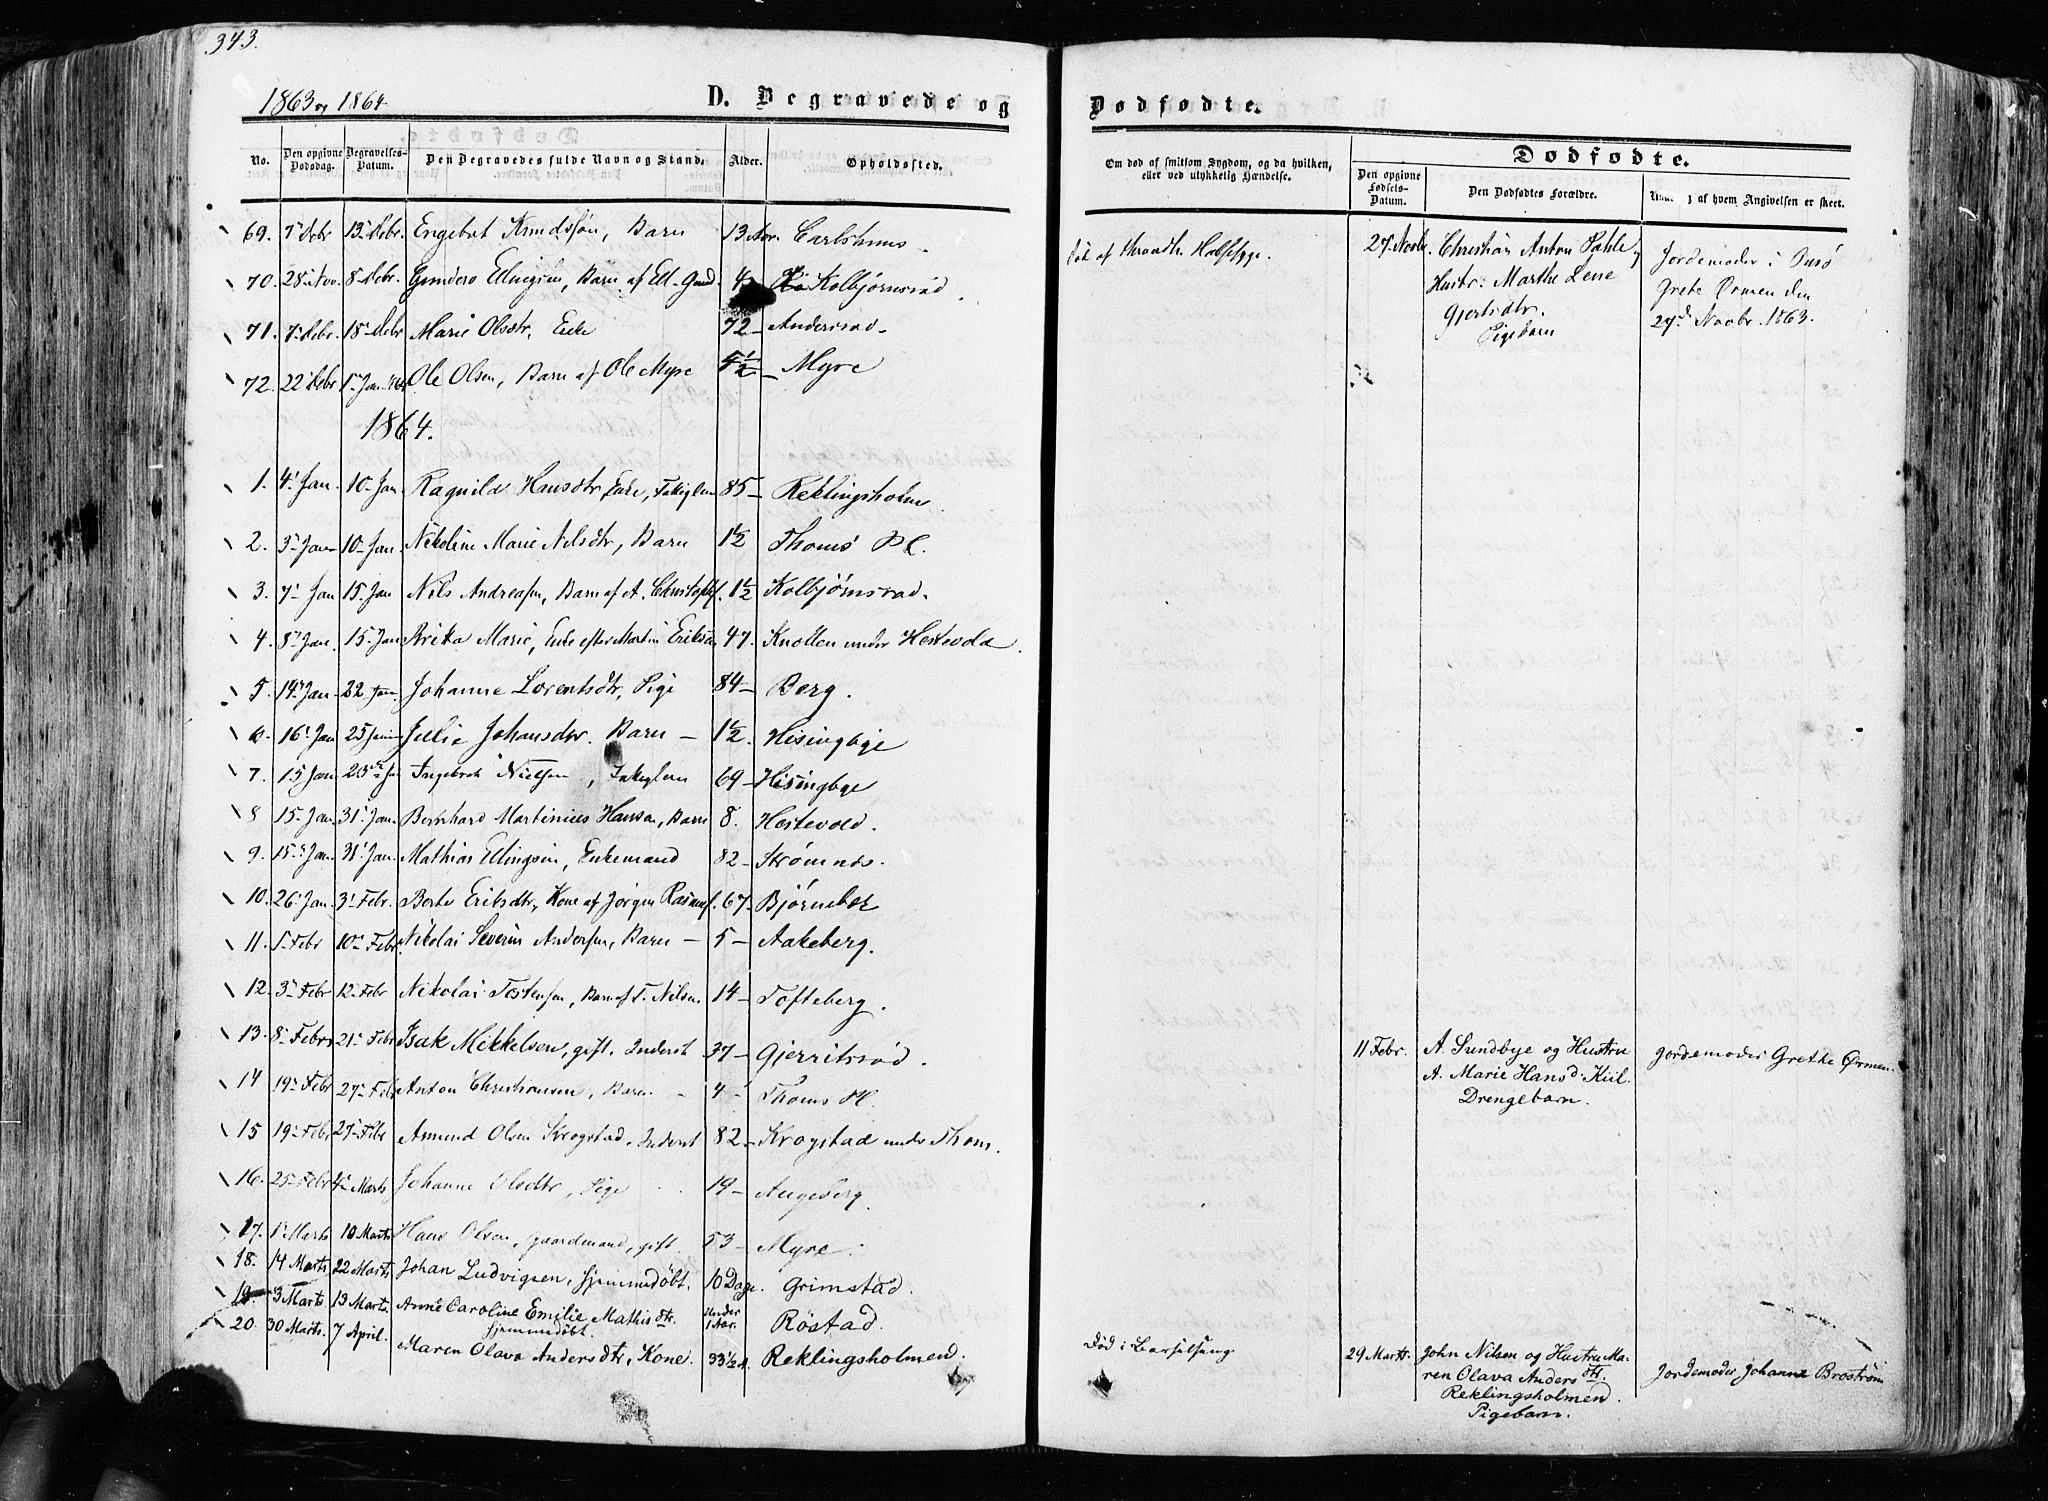 343.
1863 og 1864.
D. Begravede og
No. Den opgivne Dødsdag. Begravelses-Datum. Den Begravedes fulde Navn og Stand. Alder. Opholdssted.
69. 7 Debr 13 Debr. Engebret Knudssøn, Barn 13 Aar. Carlshuus.
70. 28 Nov. 8 Debr. Gundero Ellingsen, Barn af Ell. Gund. 4 Kolbjørnsrød.
71. 7 Debr. 15 Debr Marie Olsdtr, Enke 72 - Andersrød -
72. 22 Debr 1 Jan. Ole Olsen, Barn af Ole Myre 5½ - Myre
1864.
1. 4 Jan. 10 Jan Ragnild Hansdtr, Enke, Fattiglem 85 - Reklingsholm
2. 3 Jan 10 Jan Nikoline Marie Nilsdtr, Barn 1½ Thoms Pl.
3. 7 Jan 15 Jan Nils Andreasen, Barn af A. Christophf. 1½ Kolbjørnsrød.
4. 8 Jan. 15 Jan Brita Marie, Enke efter Martin Eriksen 47. Knotten under Hestevold.
5. 14 Jan 22 Jan. Johanne Lorentsdtr, Pige 84 - Berg.
6. 16 Jan 25 Januar Julie Johansdtr. Barn - 1½. Hisingbye
7. 15 Jan 23 Jan Ingebret Nielsen, Fattiglem 69 - Hisingbye
8 15 Jan. 31 Jan. Bernhard Martinius Hansen, Barn 8. Hestevold.
9. 15 Jan. 31 Jan. Mathias Ellingsen, Enkemand 82 - Strømnæs.
10. 26 Jan. 3 Febr. Berte Eriksdtr, Kone af Jørgen Rasmusf. 67 - Bjørnebek
11. 5 Febr 10 Febr. Nikolai Severin Andersen, Barn - 5 - Aakeberg.
12. 3 Febr 12 Febr Nikolai Tostensen, Barn af T. Nilsen. 14 - Tofteberg.
13. 8 Febr. 21 Febr. Isak Mikkelsen, gift. Inderst 37 - Gjerritsrød.
14 19 Febr 27 Febr Anton Christiansen, Barn - 4 - Thoms Pl.
15 19 Febr. 27 Febr Amund Olsen Krogstad. Inderst 82 - Krogstad under Thom.
16. 25 Febr 4 Marts Johanne Olsdtr, Pige 19 - Augeberg.
17. 1 Marts 10 Marts Hans Olsen, gaardmand, gift. 53 - Myre.
18. 14 Marts 22 Marts Johan Ludvigsen, hjemmedøbt. 10 Dage. Grimstad.
19. 3 Marts 13 Marts. Anne Caroline Emilie Mathisdtr. Under 1 Aar. Røstad.
hjemmedøbt.
20. 30 Marts. 7 April. Maren Olava Andersdtr, Kone. 33½ A. Reklingsholmen.
Dødfødte.
Om død af smitsom Sygdom, og da hvilken, eller ved ulykkelig Hændelse.
Dødfødte.
Den opgivne Fødsels-Datum. Den Dødfødtes Forældre. af hvem Angivelsen er skeet.
Død af Halssyge.
27 Novbr. Christian Anton Pahle
Hustr: Marthe Lene
Gjertsdtr.
Pigebarn
Jordemoder i
Grete Ørmen den
27d Novbr. 1863.
11 Febr. A. Sundbye og Hustru
A. Marie Hansd. Kiil.
Drengebarn.
Jordemoder Grethe Ørmen.
Død i Barselseng
29 Marts. John Nilsen og Hustru Ma-
ren Olava Andersdtr.
Reklingsholmen.
Pigebarn.
Jordemoder Johanne Brostrøm